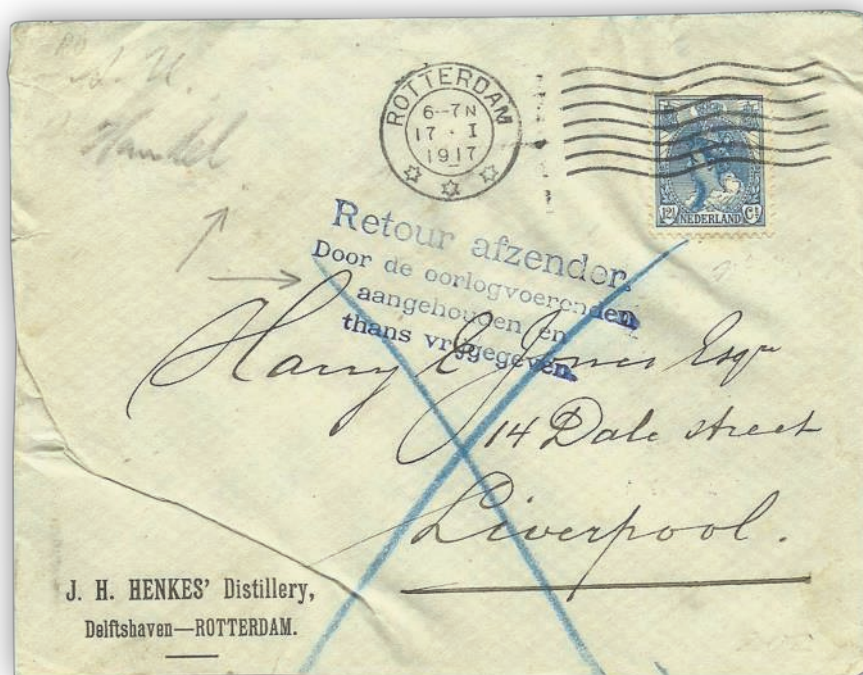 Handel
ROTTERDAM
6-7N
17 . I
1917
12½ NEDERLAND Ct
Retour afzender.
Door de oorlogvoerenden
aangehouden en
thans vrijgegeven.
Harry E Jones Esqre
14 Dale street
Liverpool.
J. H. HENKES' Distillery,
Delftshaven—ROTTERDAM.